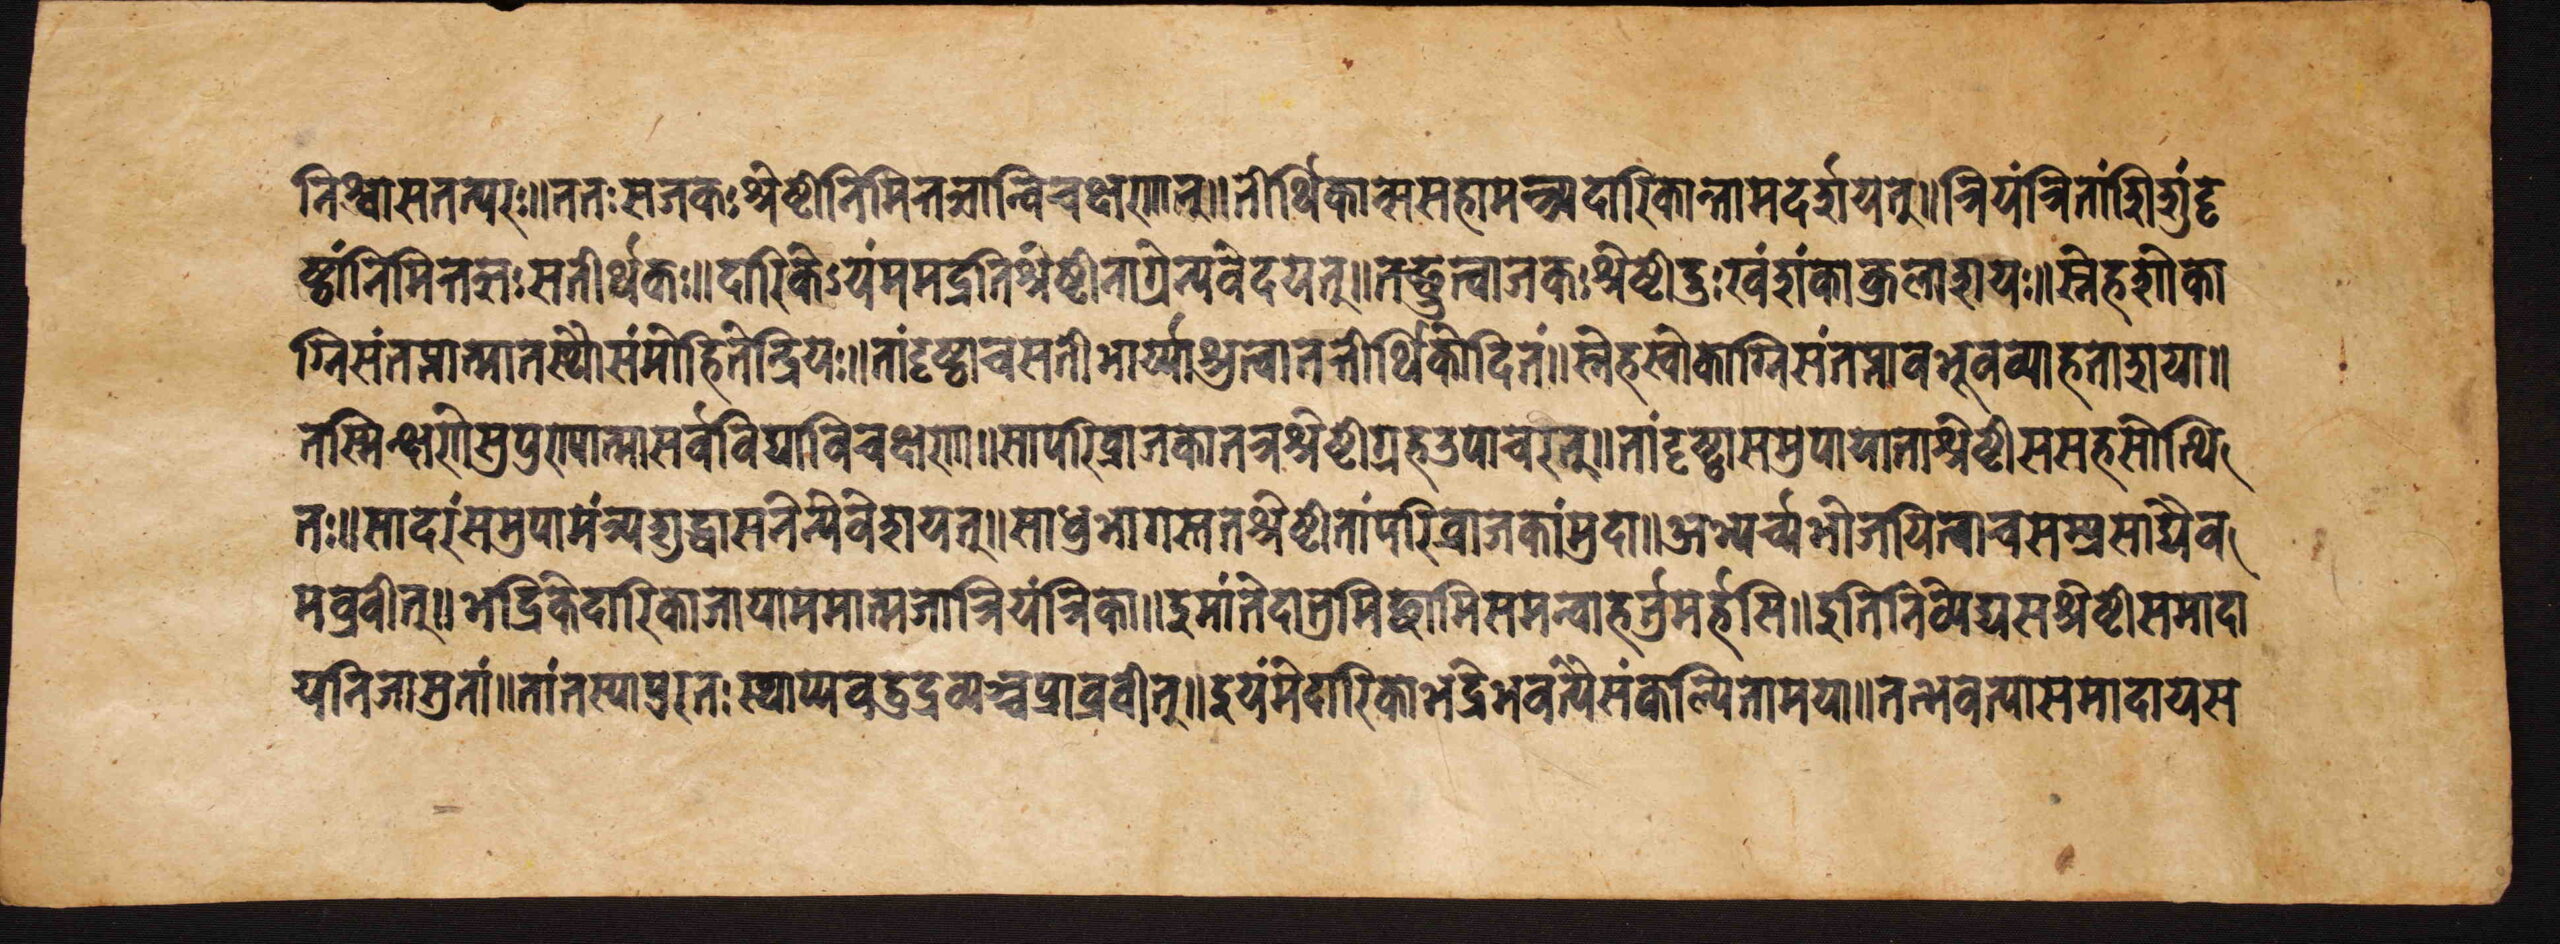 निश्वासतत्परः॥ततःसजकःश्रेष्ठीनिमित्तज्ञान्विचक्षणान्॥तीर्थिकान्ससहामन्त्र्यदारिकान्तामदर्शयत्॥त्रियंत्रितांशिशुंदृ
ष्ट्वानिमित्तज्ञःसतीर्थिकः॥दारिकेऽयंममद्रेतिश्रेष्ठीनोग्रेन्यवेदयत्॥तच्छ्रुत्वाजकःश्रेष्ठीदुःखशंकाकुलाशयः॥स्नेहशोका
ग्निसंतप्तात्मातस्थौसंमोहितेन्द्रियः॥तांदृष्ट्वाचसतीभार्य्याश्रुत्वातत्तीर्थिकोदितं॥स्नेहखोकाग्निसंतप्तावभूवव्याहताशया॥
तस्मिन्क्षणेसुपुण्यात्मासर्वविद्याविचक्षणा॥सापरिव्राजकातत्रश्रेष्ठीगृहउपाचरत्॥तांदृष्ट्वासमुपायाताश्रेष्ठीससहसोत्थि
तः॥सादरंसमुपामंत्र्यशुद्धासनेन्यवेशयत्॥साधुभागस्ततश्रेष्ठीतांपरिव्राजकांमुदा॥अभ्यर्च्यभोजयित्वाचसम्प्रसाद्यैव
मव्रवीत्॥भद्रिकेदारिकाजायाममात्मजात्रियंत्रिका॥इमांतेदातुमिच्छामिसमन्वाहर्त्तुमर्हसि॥इतिनिवेद्यसश्रेष्ठीसमादा
यनिजासुतां॥तांतस्यापुरतःस्थाप्यवहुद्रव्यञ्चप्राव्रवीत्॥इयंमेदारिकाभद्रेभवत्यैसंकल्पितामया॥तत्भवत्यासमादायस